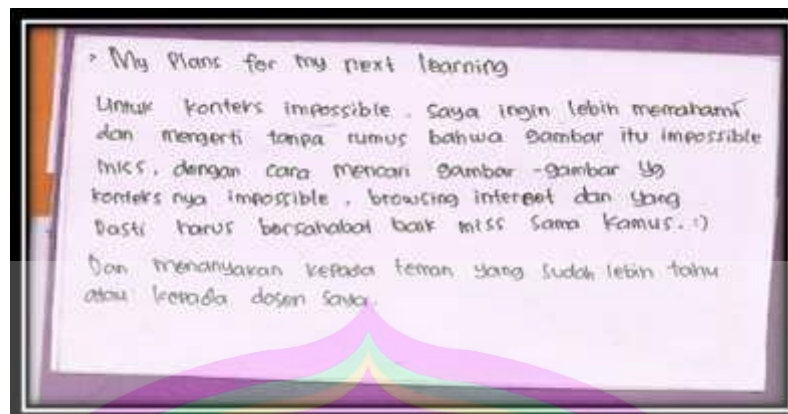 > My Plans for my next learning
Untuk konteks impossible. Saya ingin lebih memahami
dan mengerti tanpa rumus bahwa gambar itu impossible
miss, dengan cara mencari gambar-gambar yg
konteks nya impossible, browsing internet dan yang
Pasti harus bersahabat baik miss sama kamus. :)
Dan menanyakan kepada teman yang sudah lebih tahu
atau kepada dosen saya.